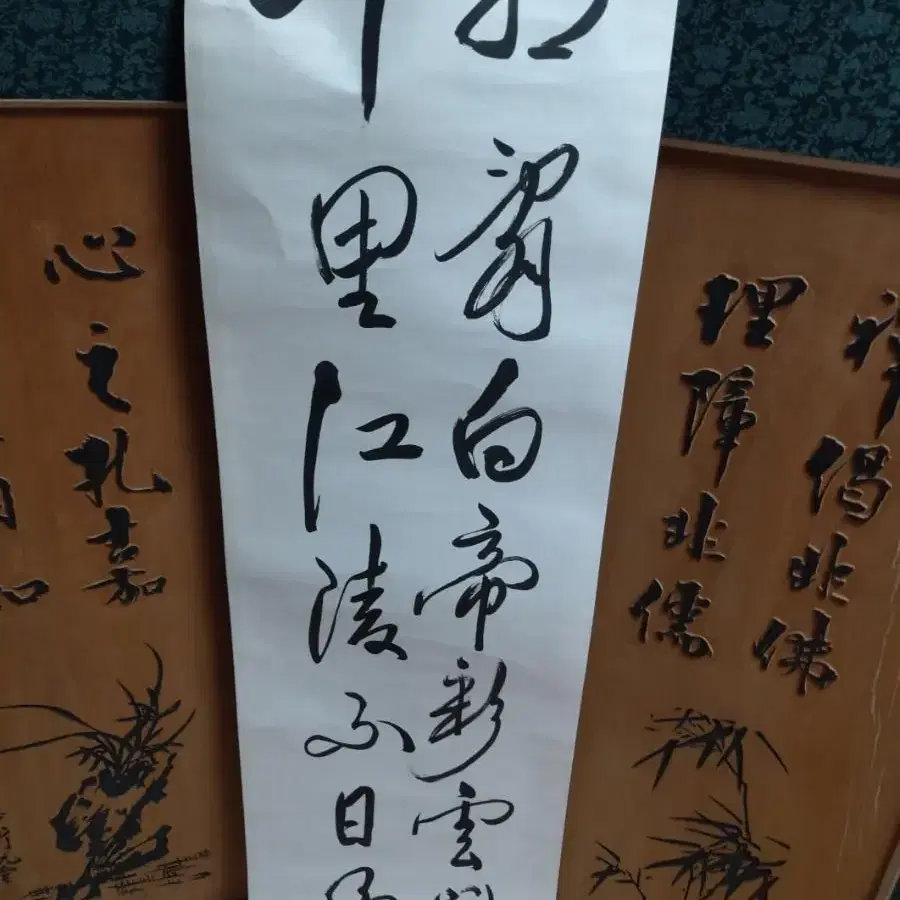 偈非佛
理障非儒
辭白帝彩雲
千里江陵不日
心之孔嘉
如